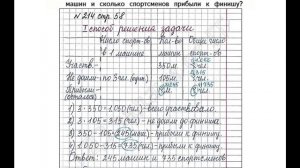 машин и сколько спортсменов прибыли к финишу?
№ 214 стр. 58
I способ решения задачи
Число спорт-ов Кол-во Общее число
в 1 машине машин спорт-ов
Участв. 350м
Не дошли - по 3 чел. 105м
Прибыли
1) 3·350=1050(чел) всего участвовало.
2) 3·105=315(чел)-не дошли до финиша.
3) 350-105=245(маш) прибыли к финишу.
4) 1050-315=735(чел) прибыли к финишу.
Ответ: 245 машин и 735 спортсменов